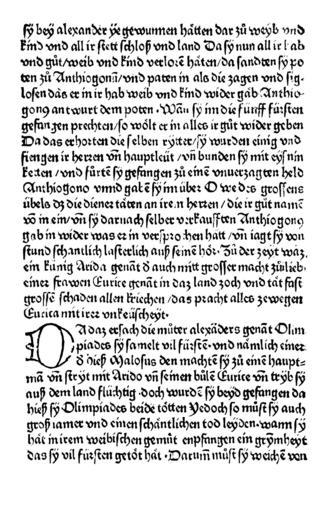 sy bey alexander ye gewunnen hätten dar zů weyb vnd
kind vnd all ir stett schloß vnd land Da sy nun all ir hab
vnd gůt/weib vnd kind verlorē häten/da sandten sy po
ten zů Anthiogonū/vnd paten in als die zagen vnd sig⸗
losen das er in ir hab weib vnd kind wider gäb Anthio⸗
gonꝯ antwurt dem poten · Wañ sy im die fünff fürsten
gefangen prechten/so wölt er in alles ir gůt wider geben
Da das erhorten die selben rytter/sy wurden einig vnd
fiengen ir herren vñ hauptleüt/vñ bunden sy mit eysnin
keten/vnd fůrtē sy gefangen zů einē vnuerzagten held
Anthiogono vnnd gabē sy im über O we des grossens
übels dz die diener täten an iren herren/die ir gůt namē
vō in ein/vñ sy darnach selber verkaufften Anthiogonꝯ
gab in wider was er in versprochen hätt/vñ iagt sy von
stund schantlich lasterlich auß seinē hör · Zů der zeyt waz
ein künig Arida genāt đ auch mit grosser macht zů lieb
einer frawen Eurice genāt in daz land zoch vnd tät fast
grossē schaden allen kriechen/das pracht alles zewegen
Eurica mit irer vnkeüscheyt ·
DA daz ersach die můter alexāders genāt Olim
piades sy samelt vil fürstē · vnd nämlich einer
đ hieß Malosus den machtē sy zů einē haupt⸗
mā vñ streyt mit Arido vñ seinen bůlē Eurice vñ tryb sy
auß dem land flüchtig · doch wurdē sy beyd gefangen da
hieß sy Olimpiades beide tötten Yedoch so můst sy auch
groß iamer vnd einen schäntlichen tod leyden · wann sy
hät in irem weibischen gemüt enpfangen ein grymheyt
das sy vil fürsten getöt hät · Darum můst sy weichē von